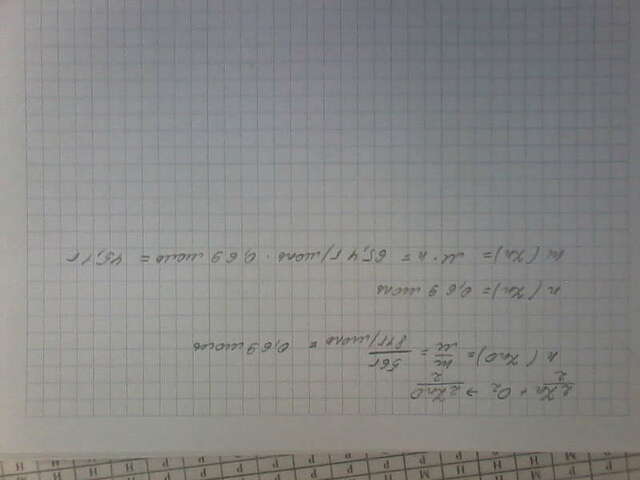 2Zn + O₂ → 2ZnO
2 2
n (ZnO) = m/M = 56г/81г/моль = 0,69 моль
n (Zn) = 0,69 моль
m (Zn) = M · n = 65,4 г/моль · 0,69 моль = 45,1г